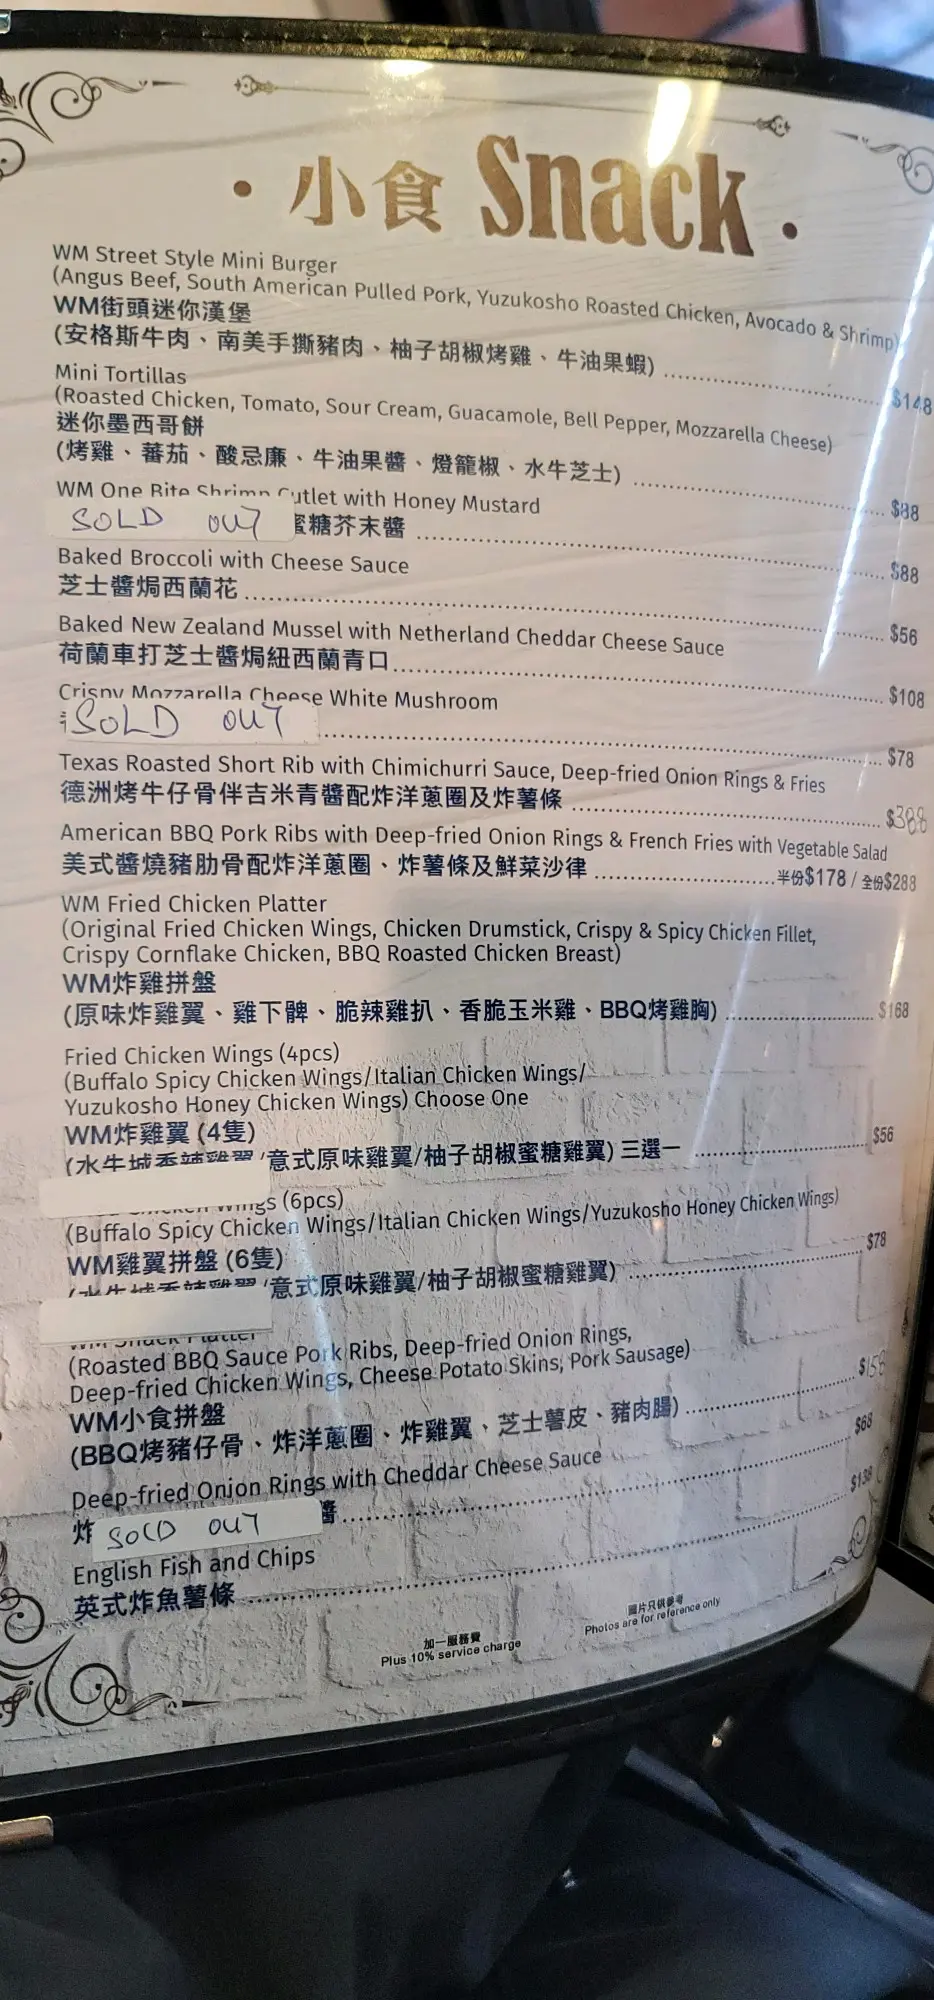 · 小食 Snack ·
WM Street Style Mini Burger
(Angus Beef, South American Pulled Pork, Yuzukosho Roasted Chicken, Avocado & Shrimp)
WM街頭迷你漢堡
(安格斯牛肉、南美手撕豬肉、柚子胡椒烤雞、牛油果蝦) $148
Mini Tortillas
(Roasted Chicken, Tomato, Sour Cream, Guacamole, Bell Pepper, Mozzarella Cheese)
迷你墨西哥餅
(烤雞、蕃茄、酸忌廉、牛油果醬、燈籠椒、水牛芝士) $88
WM One Bite Shrimp Cutlet with Honey Mustard
SOLD OUT 蜜糖芥末醬 $88
Baked Broccoli with Cheese Sauce
芝士醬焗西蘭花 $56
Baked New Zealand Mussel with Netherland Cheddar Cheese Sauce
荷蘭車打芝士醬焗紐西蘭青口 $108
Crispy Mozzarella Cheese White Mushroom
SOLD OUT $78
Texas Roasted Short Rib with Chimichurri Sauce, Deep-fried Onion Rings & Fries
德洲烤牛仔骨伴吉米青醬配炸洋蔥圈及炸薯條 $388
American BBQ Pork Ribs with Deep-fried Onion Rings & French Fries with Vegetable Salad
美式醬燒豬肋骨配炸洋蔥圈、炸薯條及鮮菜沙律 半份$178 / 全份$288
WM Fried Chicken Platter
(Original Fried Chicken Wings, Chicken Drumstick, Crispy & Spicy Chicken Fillet,
Crispy Cornflake Chicken, BBQ Roasted Chicken Breast)
WM炸雞拼盤
(原味炸雞翼、雞下髀、脆辣雞扒、香脆玉米雞、BBQ烤雞胸) $168
Fried Chicken Wings (4pcs)
(Buffalo Spicy Chicken Wings/Italian Chicken Wings/
Yuzukosho Honey Chicken Wings) Choose One
WM炸雞翼 (4隻)
(水牛城香辣雞翼/意式原味雞翼/柚子胡椒蜜糖雞翼) 三選一 $56
Wings (6pcs)
(Buffalo Spicy Chicken Wings/Italian Chicken Wings/Yuzukosho Honey Chicken Wings)
WM雞翼拼盤 (6隻)
(水牛城香辣雞翼/意式原味雞翼/柚子胡椒蜜糖雞翼) $78
WM Snack Platter
(Roasted BBQ Sauce Pork Ribs, Deep-fried Onion Rings,
Deep-fried Chicken Wings, Cheese Potato Skins, Pork Sausage)
WM小食拼盤
(BBQ烤豬仔骨、炸洋蔥圈、炸雞翼、芝士薯皮、豬肉腸) $158
Deep-fried Onion Rings with Cheddar Cheese Sauce
炸 SOLD OUT 醬 $68
English Fish and Chips
英式炸魚薯條 $138
加一服務費
Plus 10% service charge
圖片只供參考
Photos are for reference only